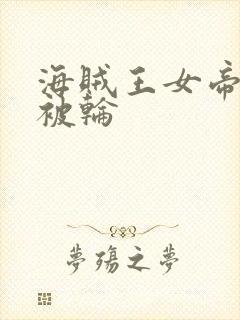 海賊王女帝
被輪
夢殤之夢